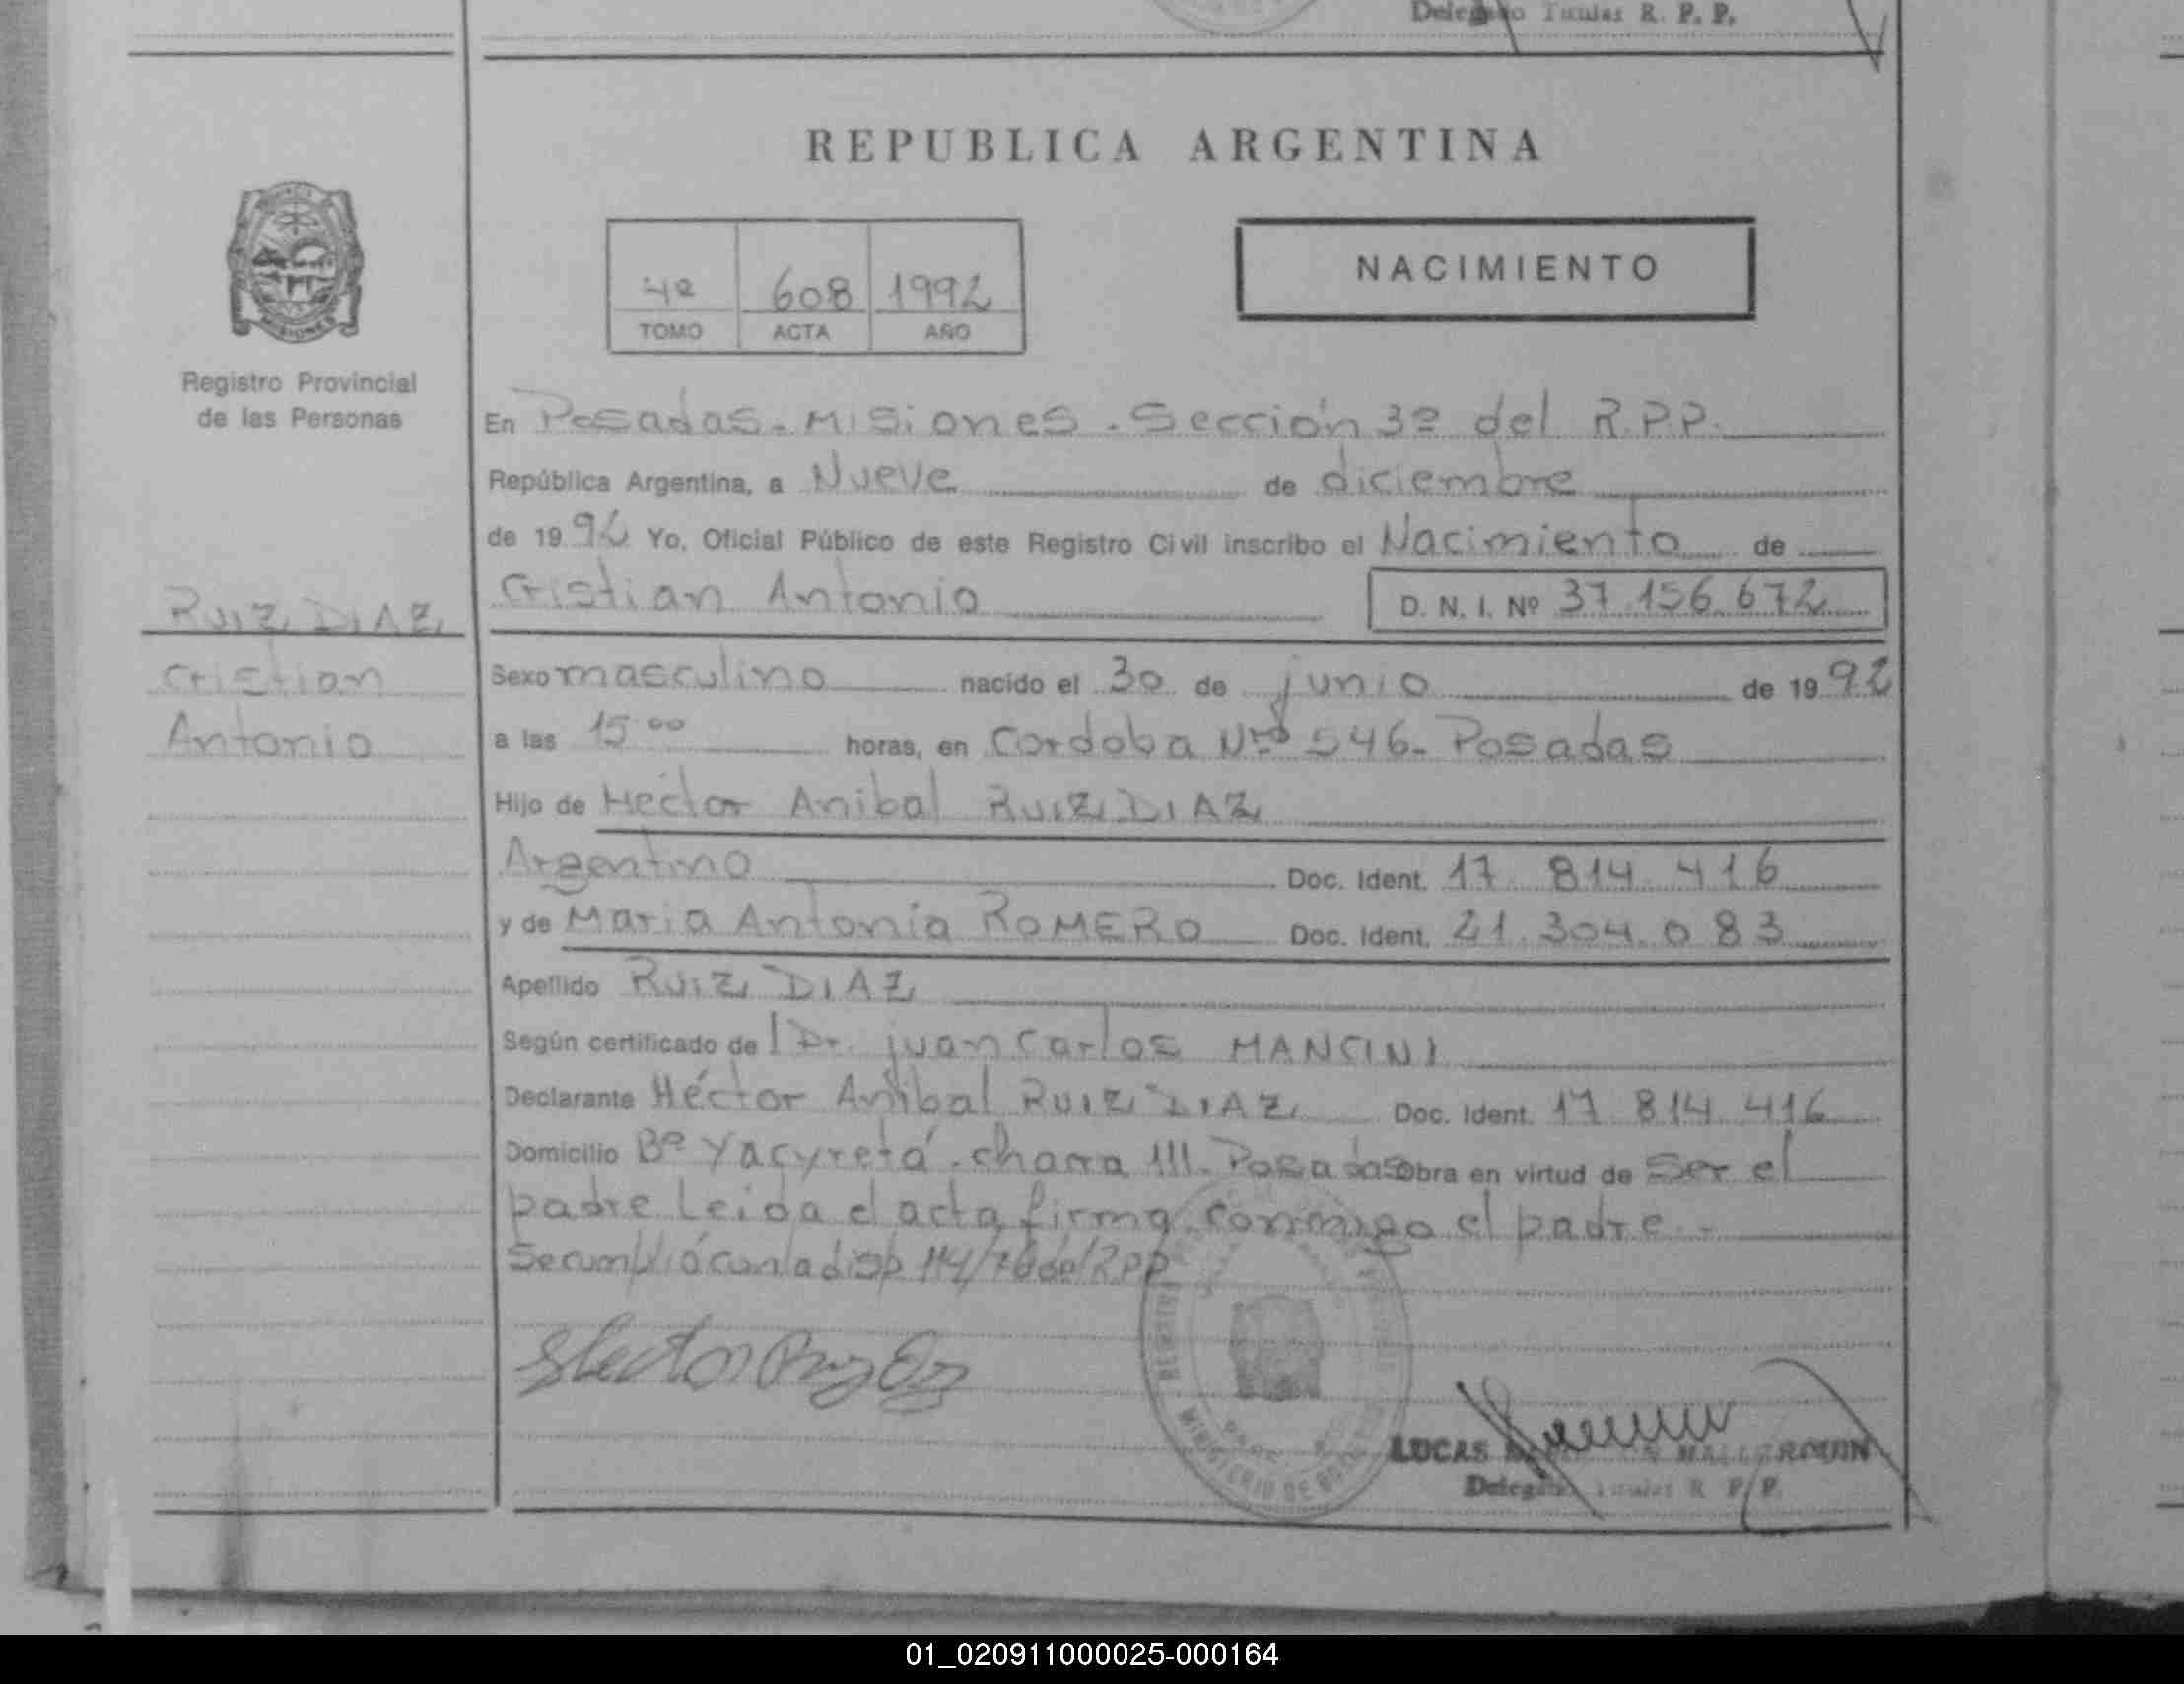 Delegado Titular R. P. P.
REPUBLICA ARGENTINA
NACIMIENTO
608 1992
TOMO ACTA AÑO
Registro Provincial
de las Personas
En Posadas - Misiones - Sección 3ª del R.P.P.
República Argentina, a Nueve de diciembre
de 1992 Yo, Oficial Público de este Registro Civil inscribo el Nacimiento de
Cristian Antonio D. N. I. Nº 37.156.672
RUIZ DIAZ
Cristian
Antonio
Sexo masculino nacido el 30 de junio de 1992
a las 15 00 horas, en Cordoba Nro 546 - Posadas
Hijo de Hector Anibal RUIZ DIAZ
Argentino Doc. Ident. 17.814.416
y de Maria Antonia ROMERO Doc. Ident. 21.304.083
Apellido RUIZ DIAZ
Según certificado del Dr. juan Carlos MANCINI
Declarante Héctor Anibal RUIZ DIAZ Doc. Ident. 17.814.416
Domicilio Bº Yacyretá - chacra 111 - Posadas Obra en virtud de Ser el
padre Leida el acta firma conmigo el padre. -
Se cumplió con la disp 114/76 del RPP
Hector Ruiz Diaz
MINISTERIO DE
LUCAS
Delegado Titular R. P. P.
01_020911000025-000164